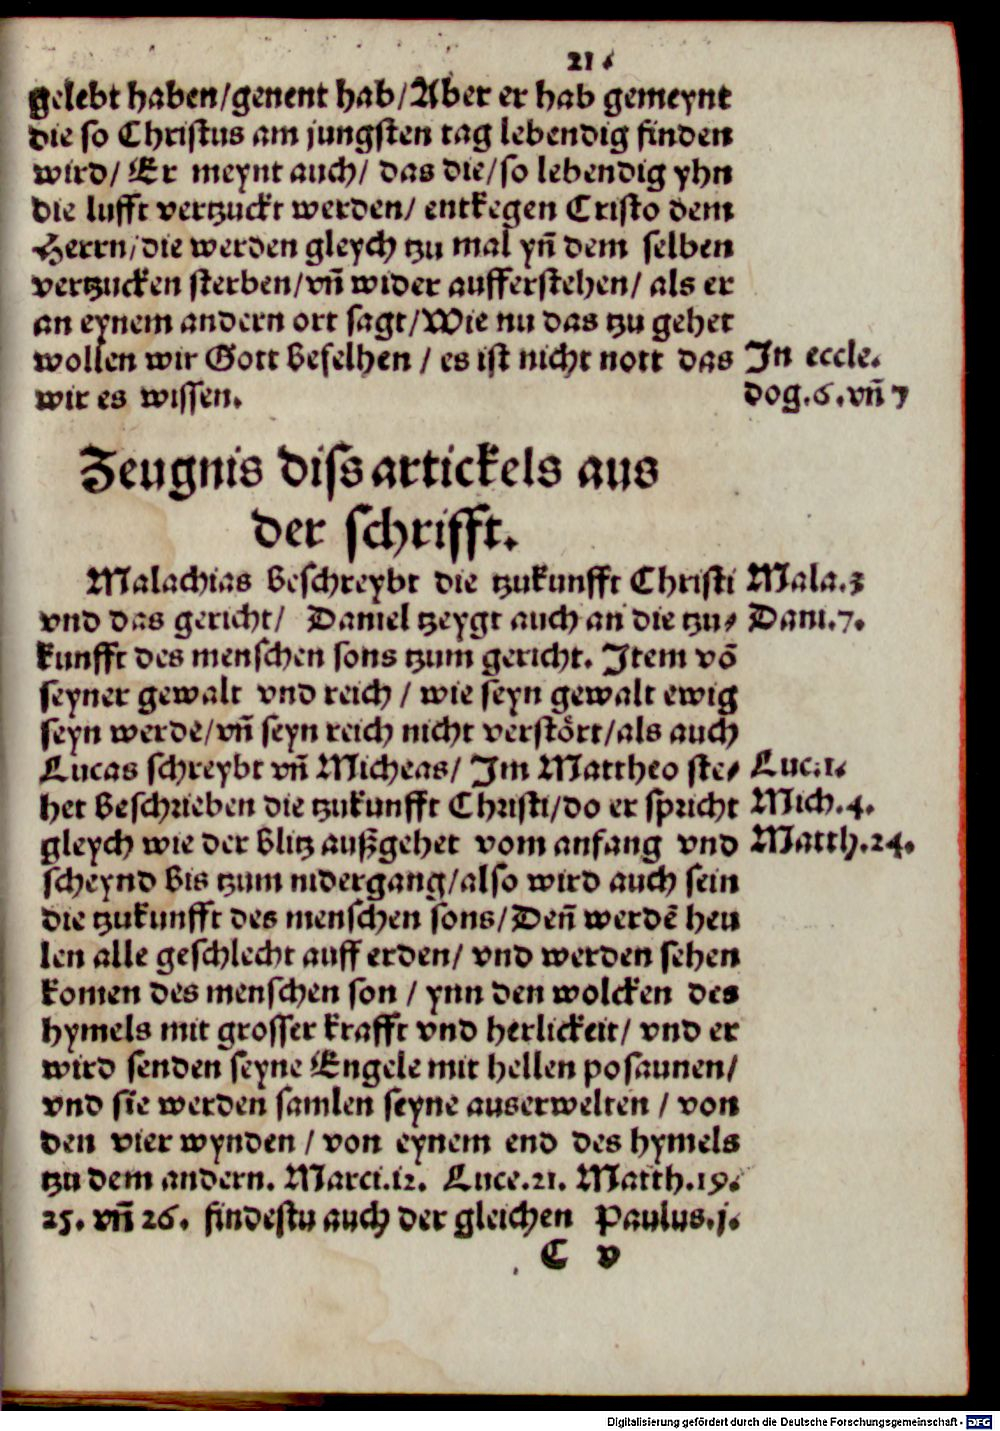 21.
gelebt haben/genent hab/Aber er hab gemeynt
die so Christus am jungsten tag lebendig finden
wird/ Er meynt auch/ das die/so lebendig yhn
die lufft vertzuckt werden/ entkegen Cristo dem
Herrn/die werden gleych tzu mal yñ dem selben
vertzucken sterben/vñ wider aufferstehen/ als er
an eynem andern ort sagt/Wie nu das tzu gehet
wollen wir Gott befelhen / es ist nicht nott das In eccle.
wir es wissen. dog.6.vñ 7
Zeugnis diss artickels aus
der schrifft.
Malachias beschreybt die tzukunfft Christi Mala.3
vnd das gericht/ Daniel tzeygt auch an die tzu- Dani.7.
kunfft des menschen sons tzum gericht. Item võ
seyner gewalt vnd reich / wie seyn gewalt ewig
seyn werde/vñ seyn reich nicht verstört/als auch
Lucas schreybt vñ Micheas/ Im Mattheo ste- Luc.1.
het beschrieben die tzukunfft Christi/do er spricht Mich.4.
gleych wie der blitz außgehet vom anfang vnd Matth.24.
scheynd bis tzum nidergang/also wird auch sein
die tzukunfft des menschen sons/Deñ werdẽ heu
len alle geschlecht auff erden/ vnd werden sehen
komen des menschen son / ynn den wolcken des
hymels mit grosser krafft vnd herlickeit/ vnd er
wird senden seyne Engele mit hellen posaunen/
vnd sie werden samlen seyne auserwelten / von
den vier wynden / von eynem end des hymels
tzu dem andern. Marci.12. Luce.21. Matth.19.
25. vñ 26. findestu auch der gleichen Paulus.j.
C v
Digitalisierung gefördert durch die Deutsche Forschungsgemeinschaft - DFG